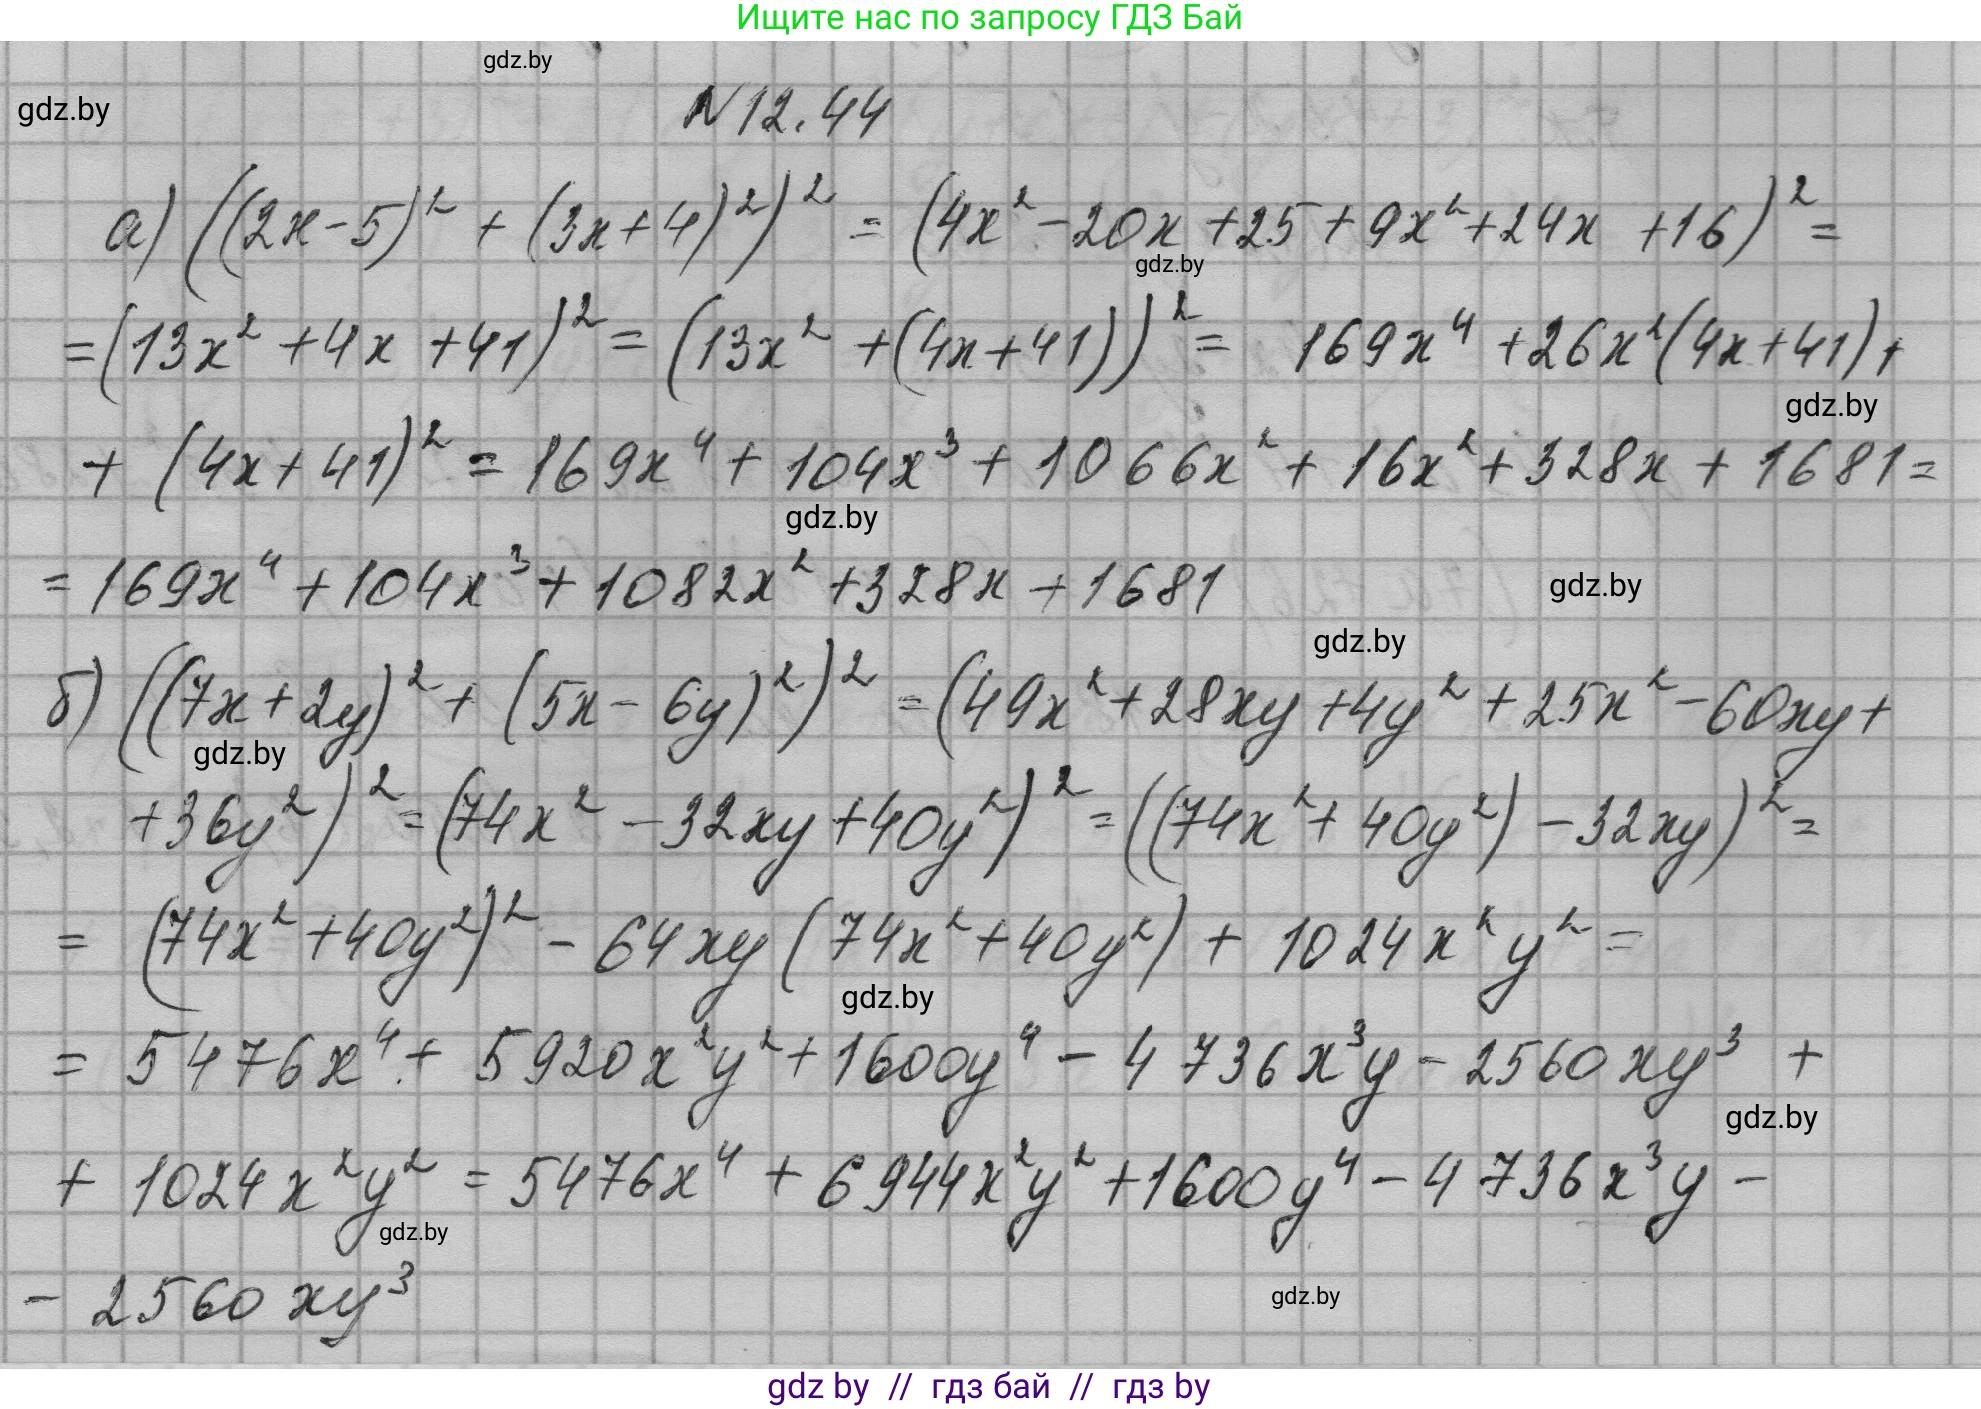 Ищите нас по запросу ГДЗ Бай
gdz.by
gdz.by
N 12.44
а) ((2x-5)² + (3x+4)²)² = (4x² -20x +25 + 9x² +24x +16)² =
gdz.by
=(13x² +4x +41)² = (13x² +(4x+41))² = 169x⁴ +26x²(4x+41)+
gdz.by
+ (4x+41)² = 169x⁴ + 104x³ + 1066x² + 16x² + 328x + 1681 =
gdz.by
= 169x⁴ +104x³ + 1082x² +328x +1681
gdz.by
gdz.by
б) ((7x+2y)² + (5x - 6y)²)² = (49x² +28xy +4y² +25x² -60xy+
gdz.by
+36y²)² = (74x² -32xy +40y²)² = ((74x² + 40y²) -32xy)² =
= (74x² +40y²)² - 64xy (74x² +40y²) + 1024x²y² =
gdz.by
= 5476x⁴ + 5920x²y² +1600y⁴ - 4736x³y - 2560xy³ +
gdz.by
+ 1024x²y² = 5476x⁴ + 6944x²y² +1600y⁴ - 4736x³y -
gdz.by
- 2560xy³
gdz.by
gdz by // гдз бай // гдз by